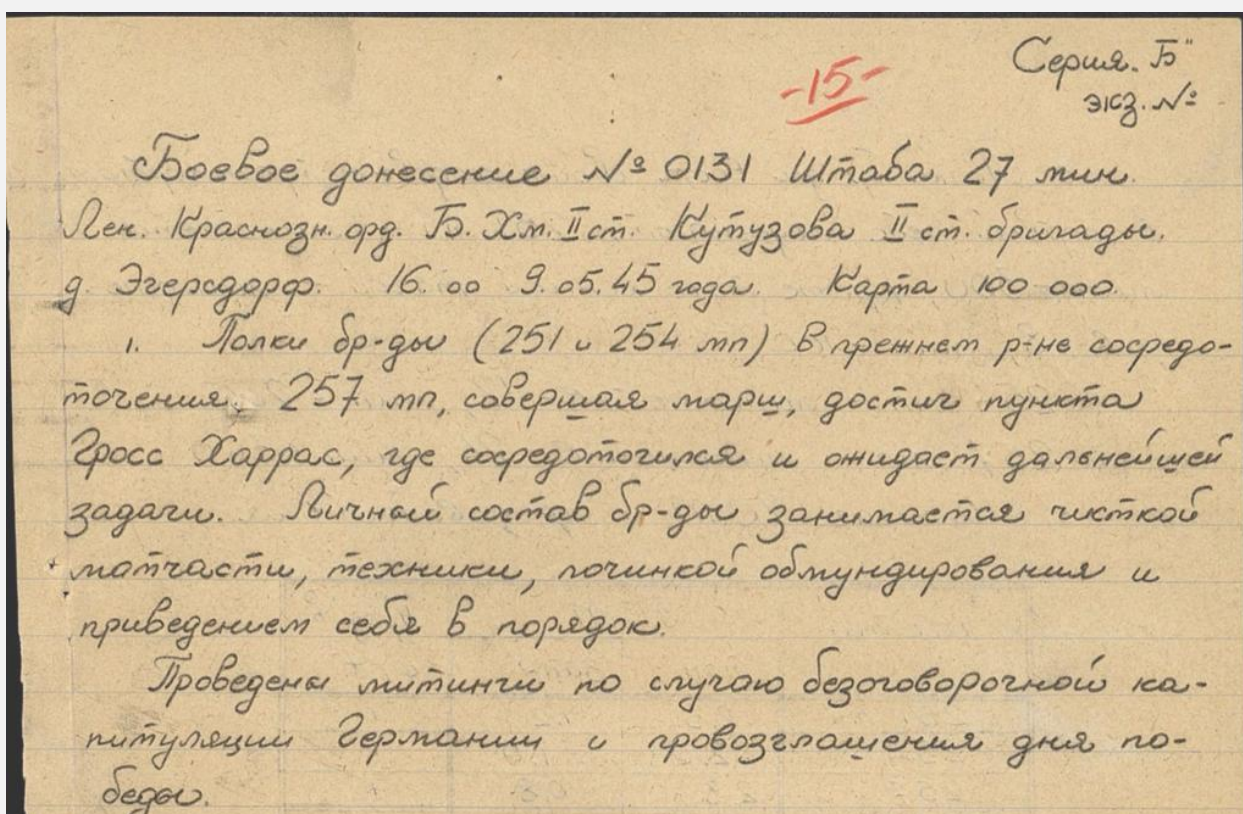 -15-
Серия „Б"
экз. №
Боевое донесение № 0131 Штаба 27 мин.
Лен. Краснозн. орд. Б. Хм. II ст. Кутузова II ст. бригады.
д. Эгерсдорф. 16.00 9.05.45 года. Карта 100 000.
1. Полки бр-ды (251 и 254 мп) в прежнем р-не сосредо-
точения. 257 мп, совершая марш, достиг пункта
Гросс Харрас, где сосредоточился и ожидает дальнейшей
задачи. Личный состав бр-ды занимается чисткой
матчасти, техники, починкой обмундирования и
приведением себя в порядок.
Проведены митинги по случаю безоговорочной ка-
питуляции Германии и провозглашения дня по-
беды.